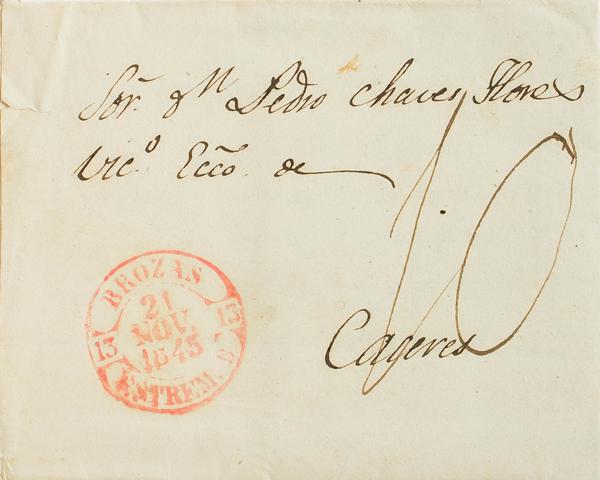 Sõr. Dn Pedro Chaves Flores
Vic.º Ecco. de
10
Caçeres
BROZAS
13 21 13
NOV.
1845
ESTREM. B.